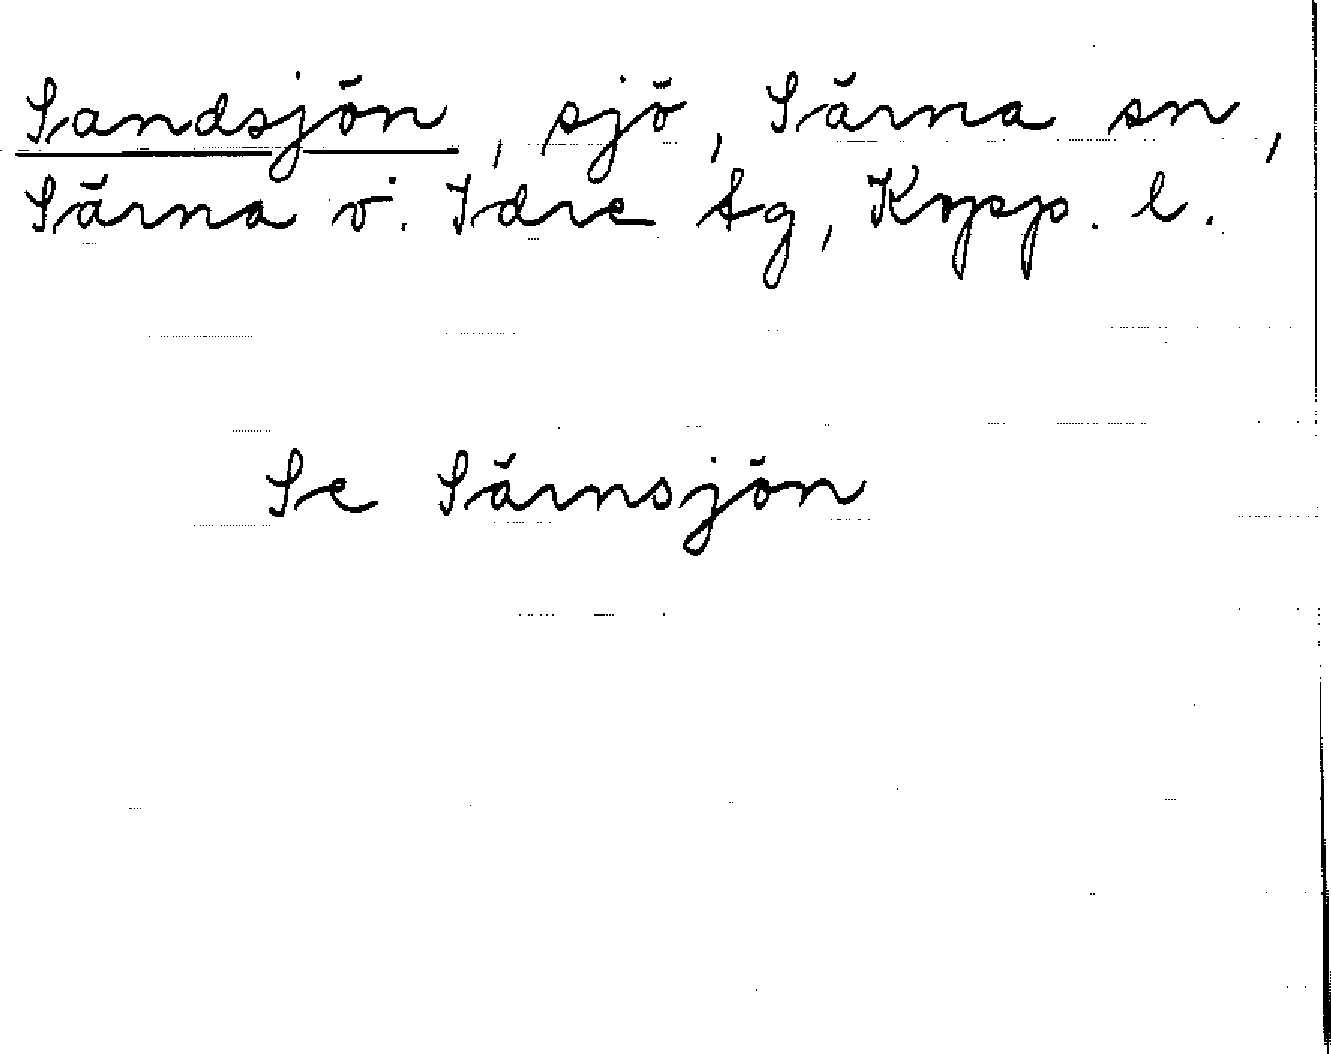 Sandsjön, sjö, Särna sn,
Särna o. Idre tg, Kopp. l.
Se Särnsjön